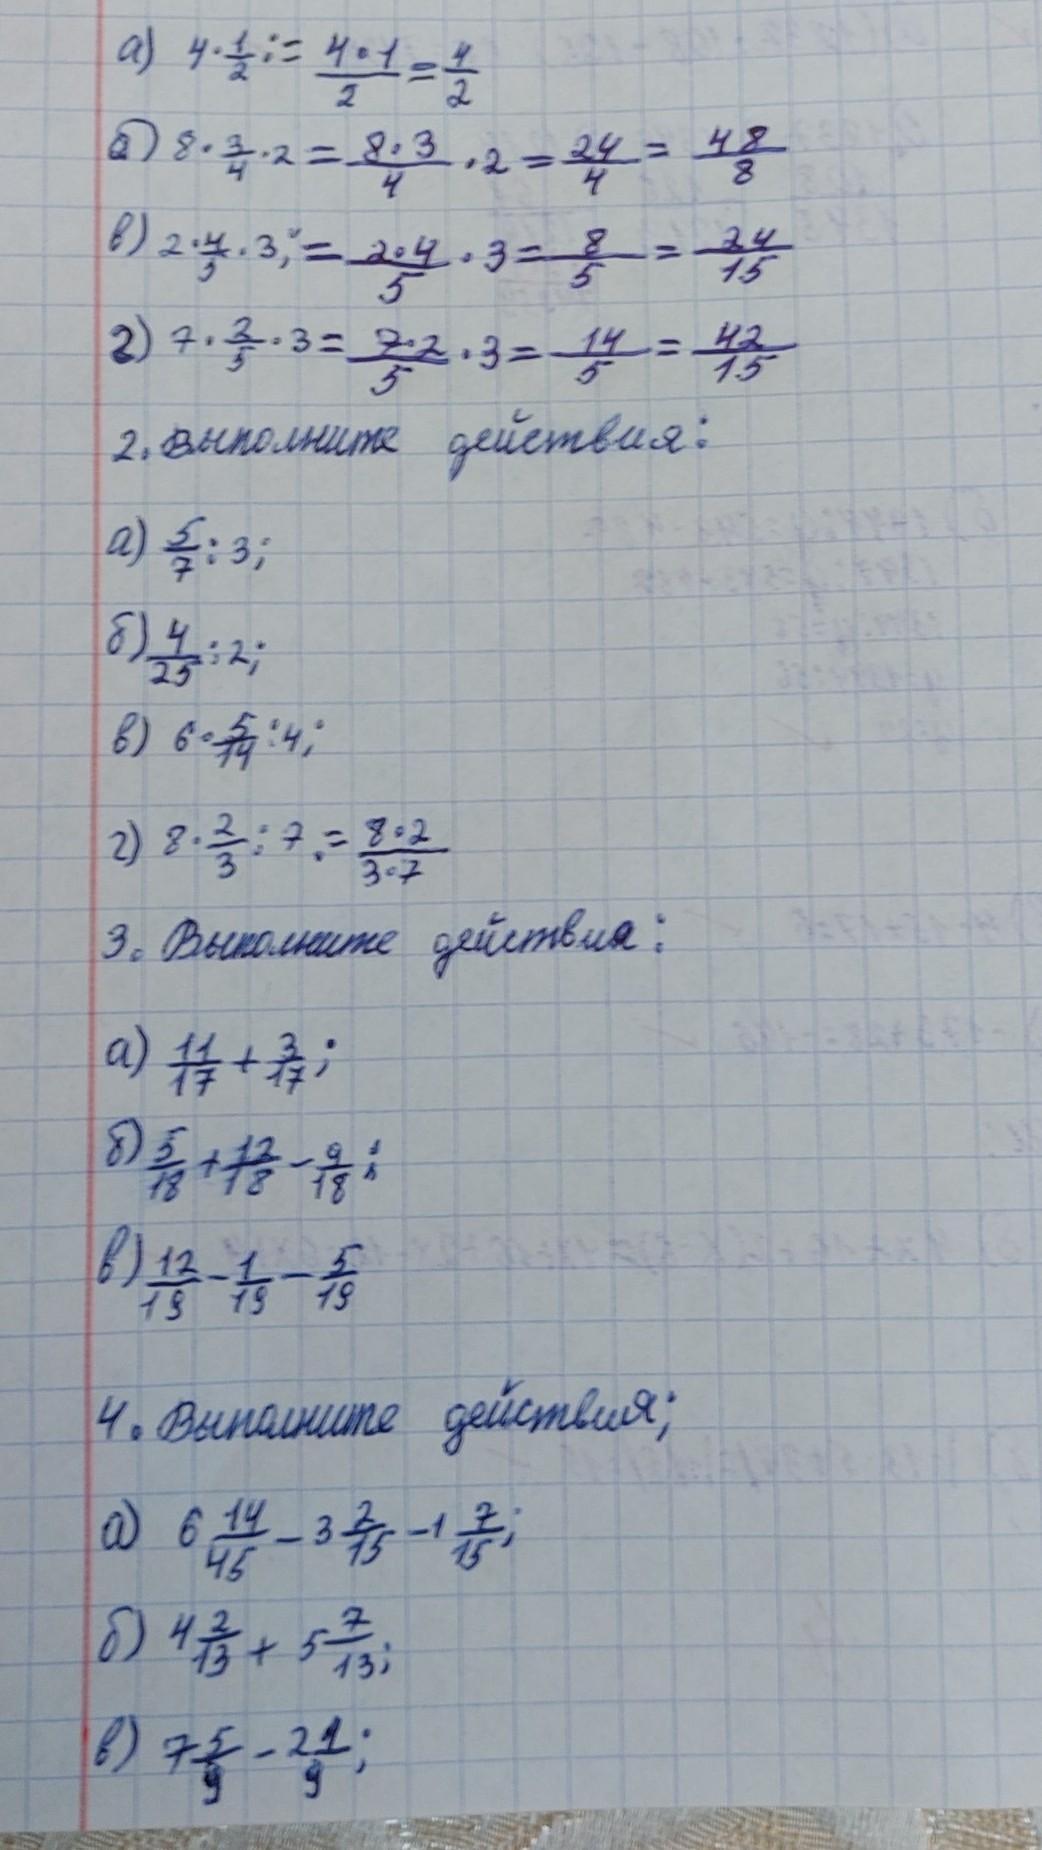 а) 4·1/2;= 4·1/2=4/2
б) 8·3/4·2=8·3/4·2=24/4=48/8
в) 2·4/5·3;=2·4/5·3=8/5=24/15
г) 7·2/5·3=7·2/5·3=14/5=42/15
2. Выполните действия:
а) 5/7:3;
б) 4/25:2;
в) 6·5/14:4;
г) 8·2/3:7.=8·2/3·7
3. Выполните действия:
а) 11/17+3/17;
б) 5/18+12/18-9/18;
в) 12/19-1/19-5/19
4. Выполните действия;
а) 6 14/45-3 2/15-1 7/15;
б) 4 2/13+5 7/13;
в) 7 5/9-2 1/9;